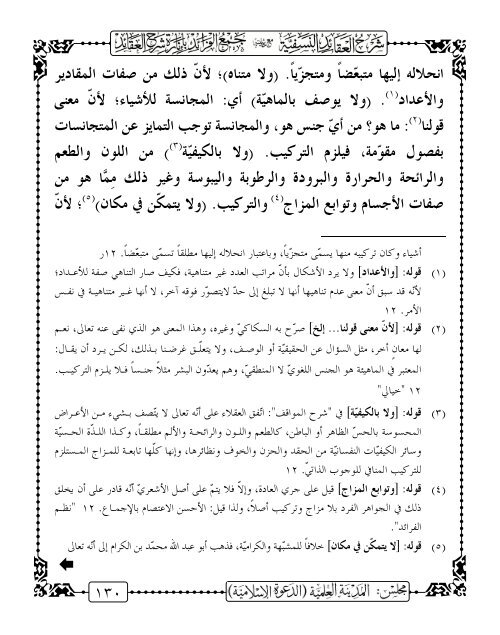 شرح العقائد النسفية مع جمع الفرائد بإنارة شرح العقائد
انحلاله إليها متبعّضاً ومتجزّياً. (ولا متناه)؛ لأنّ ذلك من صفات المقادير
والأعداد(١). (ولا يوصف بالماهيّة) أي: المجانسة للأشياء؛ لأنّ معنى
قولنا(٢): ما هو؟ من أيّ جنس هو، والمجانسة توجب التمايز عن المتجانسات
بفصول مقوّمة، فيلزم التركيب. (ولا بالكيفيّة(٣)) من اللون والطعم
والرائحة والحرارة والبرودة والرطوبة واليبوسة وغير ذلك مِمَّا هو من
صفات الأجسام وتوابع المزاج(٤) والتركيب. (ولا يتمكّن في مكان)(٥)؛ لأنّ
أشياء وكان تركيبه منها يسمّى متجزّياً، وباعتبار انحلاله إليها مطلقاً تسمّى متبعّضاً. ١٢ر
(١) قوله: [والأعداد] ولا يرد الأشكال بأنّ مراتب العدد غير متناهية، فكيف صار التناهي صفة للأعداد؛
لأنه قد سبق أنّ معنى عدم تناهيها أنها لا تبلغ إلى حدّ لايتصوّر فوقه آخر، لا أنها غير متناهية في نفس
الأمر. ١٢
(٢) قوله: [لأنّ معنى قولنا... إلخ] صرّح به السكاكيّ وغيره، وهذا المعنى هو الذي نفى عنه تعالى، نعم
لها معانٍ أخر، مثل السؤال عن الحقيقيّة أو الوصف، ولا يتعلّق غرضنا بذلك، لكن يرد أن يقال:
المعتبر في الماهيئة هو الجنس اللغويّ لا المنطقيّ، وهم يعدّون البشر مثلاً جنساً فلا يلزم التركيب.
١٢ "خيالي"
(٣) قوله: [ولا بالكيفيّة] في "شرح المواقف": اتّفق العقلاء على أنّه تعالى لا يتّصف بشيء من الأعراض
المحسوسة بالحسّ الظاهر أو الباطن، كالطعم واللون والرائحة والألم مطلقاً، وكذا اللذّة الحسيّة
وسائر الكيفيّات النفسانيّة من الحقد والحزن والخوف ونظائرها، وإنها كلّها تابعة للمزاج المستلزم
للتركيب المنافي للوجوب الذاتيّ. ١٢
(٤) قوله: [وتوابع المزاج] قيل على جري العادة، وإلاّ فلا يتمّ على أصل الأشعريّ أنّه قادر على أن يخلق
ذلك في الجواهر الفرد بلا مزاج وتركيب أصلاً، ولذا قيل: الأحسن الاعتصام بالإجماع. ١٢ "نظم
الفرائد".
(٥) قوله: [لا يتمكّن في مكان] خلافاً للمشبّهة والكراميّة، فذهب أبو عبد الله محمّد بن الكرام إلى أنّه تعالى
مجلس: المدينة العلمية (الدعوة الإسلامية)
١٣٠